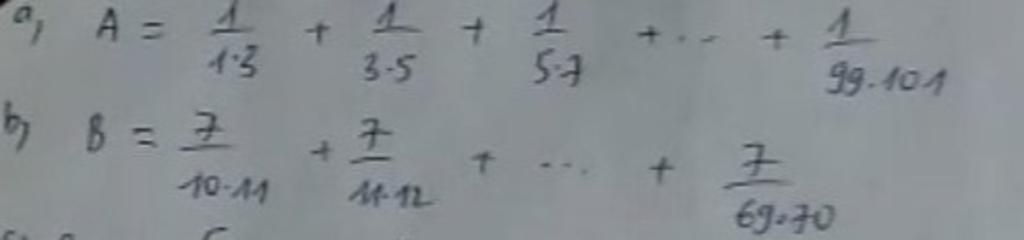 a, A = 1/1·3 + 1/3·5 + 1/5·7 + ... + 1/99·101
b, B = 7/10·11 + 7/11·12 + ... + 7/69·70